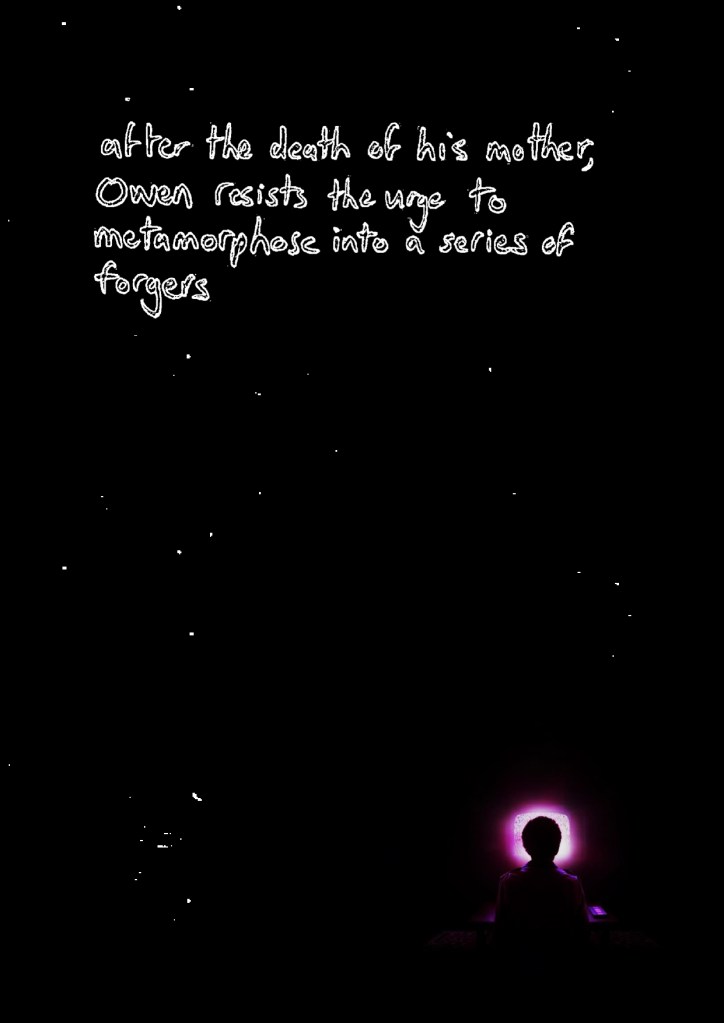 after the death of his mother,
Owen resists the urge to
metamorphose into a series of
forgers